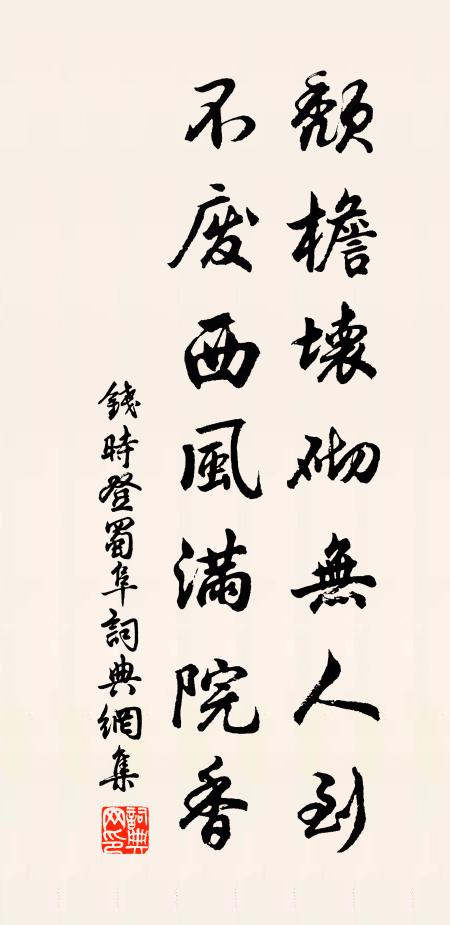 頹檐壞砌無人到
不廢西風滿院香
錢時登蜀阜詞典網集
詞典網印